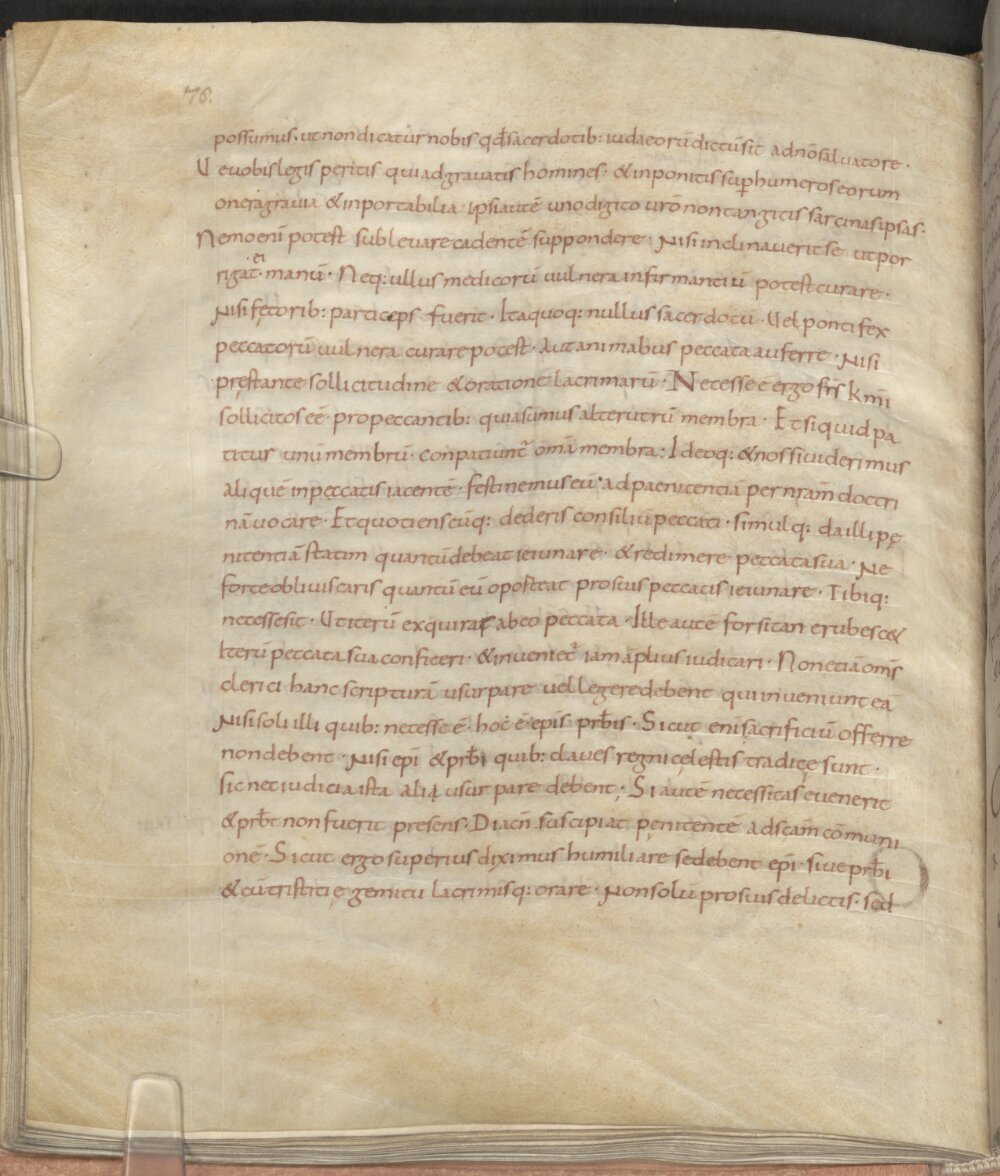 78.
possumus. ut non dicatur nobis qđ sacerdotib: iudaeorū dictū sit ad nō saluatore.
Ue uobis legis peritis quia dgrauatis homines. & inponitis sup humeros eorum
onera grauia & inportabilia. ipsi autē uno digito urō non tangitis sarcinas ipsas.
Nemo enī potest subleuare cadentē suppondere. Nisi inclinauerit se ut por
rigat ei manū. Neq: ullus medicorū uulnera infirmantiū potest curare.
Nisi fętorib: particeps fuerit. Itaquoq: nullus sacerdotū. Uel pontifex
peccatorū uulnera curare potest. Aut animabus peccata auferre. Nisi
pręstante sollicitudine & oratione lacrimarū. Necesse ē ergo frs kmi
sollicitos eē. pro peccantib: quia sumus alterutrū membra. Et si quid pa
titur unū membrū. conpatiunt omā membra: Ideoq: & nos si uiderimus
aliquē in peccatis iacentē. festinemus eū ad paenitentiā per nrām doctri
nā uocare. Et quotienscūq: dederis consiliū peccati. simulq: da illi pę
nitentiā statim quantū debeat ieiunare. & redimere peccata sua. Ne
forte obliuiscaris quantū eū oposteat pro suis peccatis ieiunare. Tibiq:
necesse sit. Ut iterū exquiras ab eo peccata. Ille autē forsitan erubesc&
Iterū peccata sua confiteri. & inueniet iam āplius iudicari. Non etiā om̄s
clerici hanc scripturā usurpare uel legere debent qui inueniunt eā
Nisi soli illi quib: necesse ē. hoc ē. epis. prb̄is. Sicut enī sacrificiū offerre
non debent. Nisi epi & prb̄i quib: claues regni cęlestis tradite sunt.
sic nec iudicia ista alii usurpare debent; Si autē necessitas euenerit
& prb̄t non fuerit presens. Diacn̄ suscipiat pęnitentē ad scām cōmuni
onē. Sicut ergo superius diximus humiliare se debent epi. siue prb̄i
& cū tristitię gemitu lacrimisq: orare. Non solū pro suis delictis. sed